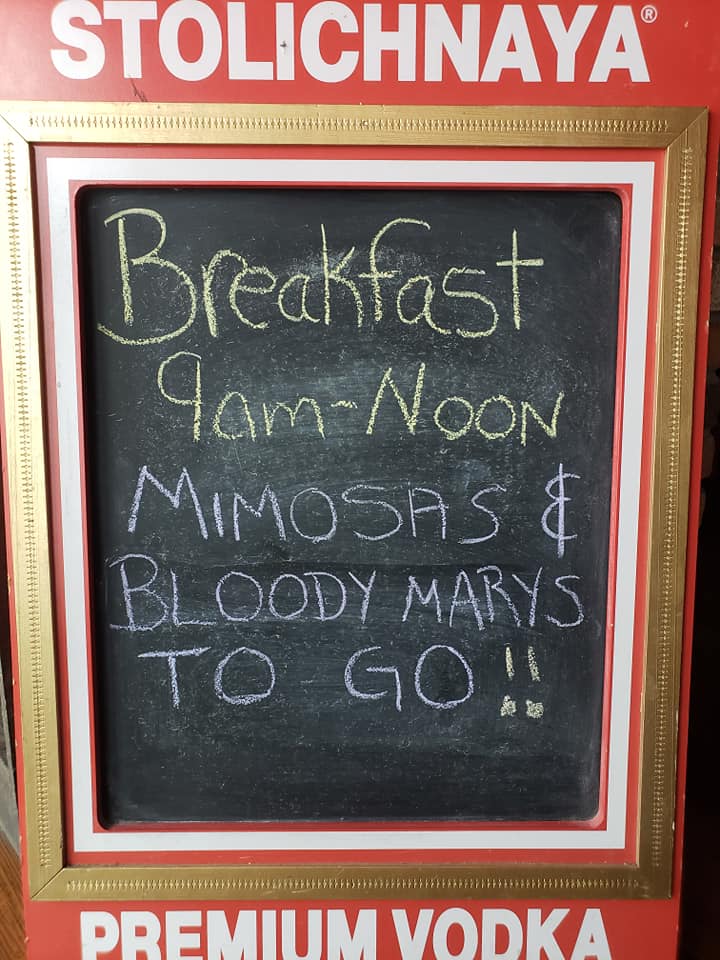 STOLICHNAYA®
Breakfast
9am-NOON
MIMOSAS &
BLOODY MARYS
TO GO !!
PREMIUM VODKA